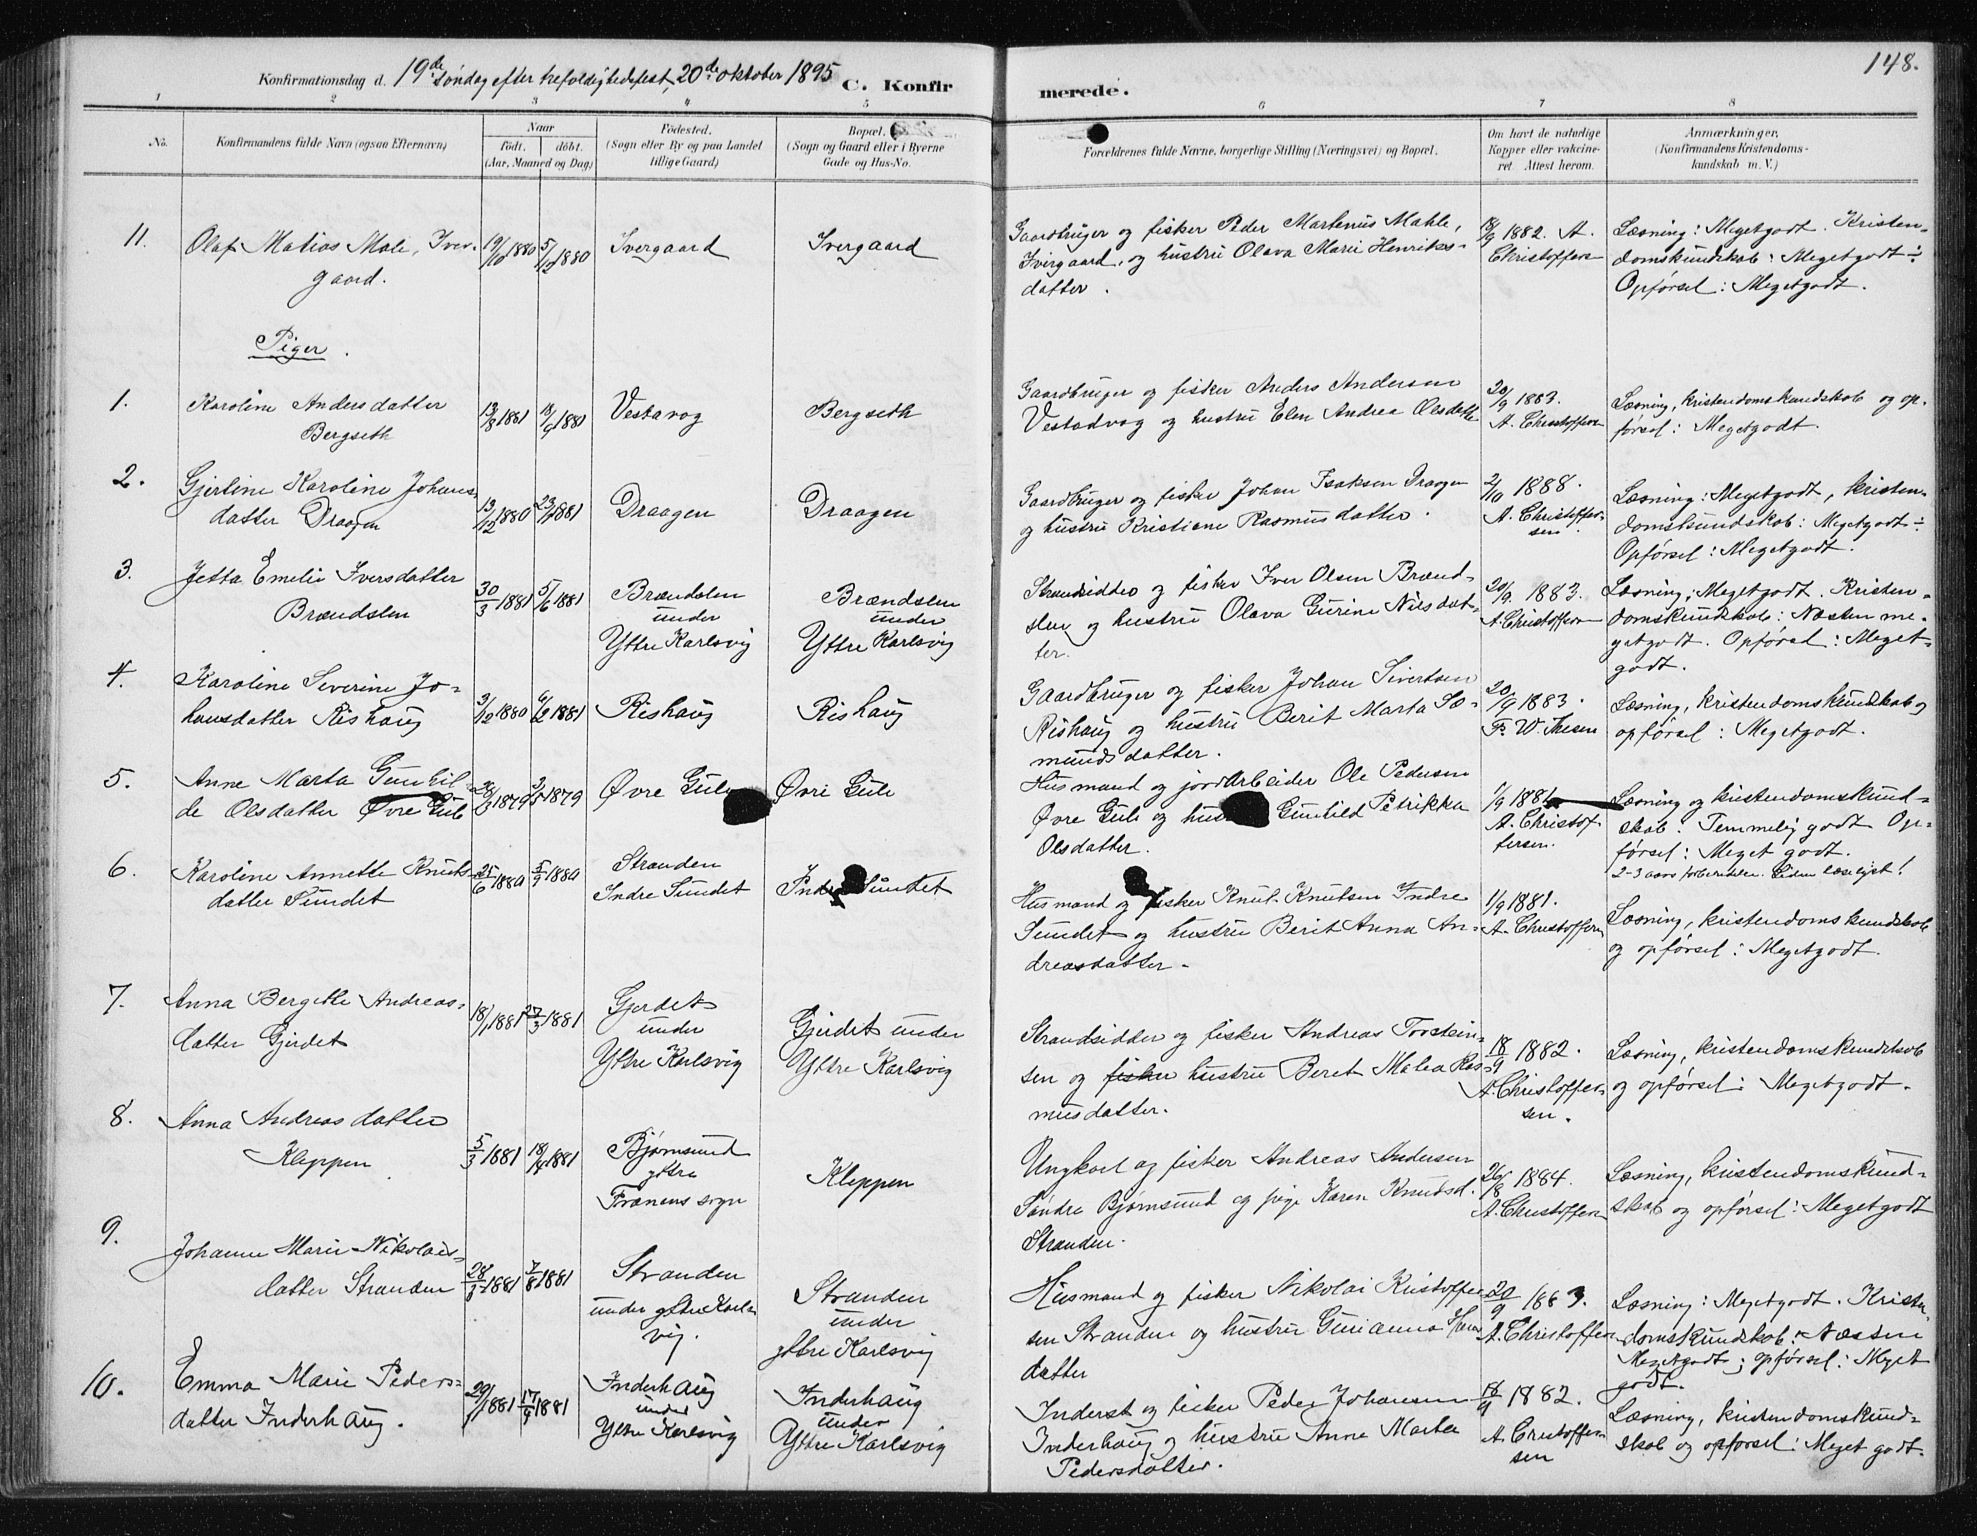 148.
Konfirmationsdag d. 19de søndag efter trefoldighedsfest, 20de oktober 1895
C. Konfirmerede.
1 2 3 4 5 6 7 8
No.
Konfirmandens fulde Navn (ogsaa Efternavn)
Naar
født. døbt.
(Aar, Maaned og Dag)
Fødested.
(Sogn eller By og paa Landet
tillige Gaard)
Bopæl.
(Sogn og Gaard eller i Byerne
Gade og Hus-No.
Forældrenes fulde Navne, borgerlige Stilling (Næringsvei) og Bopæl.
Om havt de naturlige
Kopper eller vakcine-
ret Attest herom.
Anmærkninger.
(Konfirmandens Kristendoms-
kundskab m. V.)
11.
Olaf Matias Male, Iver-
gaard.
19/10 1880
5/12 1880
Ivergaard
Ivergaard
Gaardbruger og fisker Peder Martenius Mahle,
Ivergaard, og hustru Olava Marie Henriks-
datter.
18/9 1882. A.
Christoffersen
Læsning: Megetgodt. Kristen-
domskundskab: Megetgodt ÷
Opførsel: Megetgodt.
Piger.
1.
Karoline Andersdatter
Bergseth
13/8 1881
18/9 1881
Vestavog
Bergseth
Gaardbruger og fisker Anders Andersen
Vestadvog og hustru Elen Andrea Olsdatter
20/9 1883.
A. Christoffersen
Læsning, kristendomskundskab og op-
førsel: Megetgodt.
2.
Gjertine Karoline Johans-
datter Draagen
13/12 1880
1881
Draagen
Draagen
Gaardbruger og fisker Johan Isaksen Draagen
og hustru Kristiane Rasmusdatter.
2/10 1888.
A. Christoffer-
sen.
Læsning: Megetgodt, kristen-
domskundskab: Megetgodt ÷
Opførsel: Megetgodt.
3.
Jetta Emelie Iversdatter
Brændslen
30/3 1881
5/6 1881
Brændslen
under
Yttre Karlsvig
Brændslen
under
Yttre Karlsvig
Strandsidder og fisker Iver Olsen Brænd-
slen og hustru Olava Gurine Nilsdat-
ter.
20/9 1883.
A. Christoffersen
Læsning: Megetgodt. Kristen-
domskundskab: Næsten me-
getgodt. Opførsel: Meget-
godt.
4.
Karoline Severine Jo-
hansdatter Rishaug
3/12 1880
6/2 1881
Rishaug
Rishaug
Gaardbruger og fisker Johan Sivertsen
Rishaug og hustru Berit Marta Sæ-
mundsdatter.
20/9 1883.
Fr. W. Thesen
Læsning, kristendomskundskab og
opførsel: Megetgodt.
5.
Anne Marta Gunhil-
de Olsdatter Øvre Gule
1879
1879
Øvre Gule
Øvre Gule
Husmand og jordarbeider Ole Pedersen
Øvre Gule og hustru Gunhild Petrikka
Olsdatter.
1/9 1881
A. Christof-
fersen.
Læsning og kristendomskund-
skab: Temmelig godt. Op-
førsel: Meget godt.
2-3 aars forberedelse.
6.
Karoline Annette Knuts-
datter Sundet
25/6 1880
5/9 1880
Stranden
Indre Sundet
Indre Sundet
Husmand og fisker Knut Knutsen Indre
Sundet og hustru Berit Anna An-
dreasdatter.
1/9 1881.
A. Christoffersen
Læsning, kristendomskundskab
og opførsel: Megetgodt.
7.
Anna Bergitte Andreas-
datter Gjerdet
18/1 1881
27/3 1881
Gjerdet
under
Yttre Karlsvig
Gjerdet under
Yttre Karlsvig
Strandsidder og fisker Andreas Torstein-
sen og fisker hustru Beret Malea Ras-
musdatter.
18/9 1882.
A. Christoffer-
sen.
Læsning, kristendomskundskab
og opførsel: Megetgodt.
8.
Anna Andreasdatter
Kleppen
5/3 1881
18/4 1881
Bjørnsund
yttre
Frænens sogn
Kleppen
Ungkarl og fisker Andreas Andersen
Søndre Bjørnsund og pige Karen Knudsd.
Stranden.
26/8 1884.
A. Christoffersen
Læsning, kristendomskund-
skab og opførsel: Megetgodt
9.
Johanne Marie Nikolais-
datter Stranden
28/3 1881
7/8 1881
Stranden
under yttre Karls-
vig.
Stranden
under
yttre Karlsvig
Husmand og fisker Nikolai Kristoffer-
sen Stranden og hustru Gurianna
datter
20/9 1883.
A. Christoffersen
Læsning: Megetgodt. Kristen-
domskundskab: Næsten
Megetgodt; opførsel: Meget
godt.
10.
Emma Marie Peders-
datter Inderhaug.
29/1 1881
17/4 1881
Inderhaug
under
Yttre Karlsvig
Inderhaug
under
Yttre Karlsvig
Inderst og fisker Peder Johansen
Inderhaug og hustru Anne Marta
Pedersdatter.
18/9 1882.
A. Cristoffer-
sen
Læsning, kristendomskund-
skab og opførsel: Meget godt.